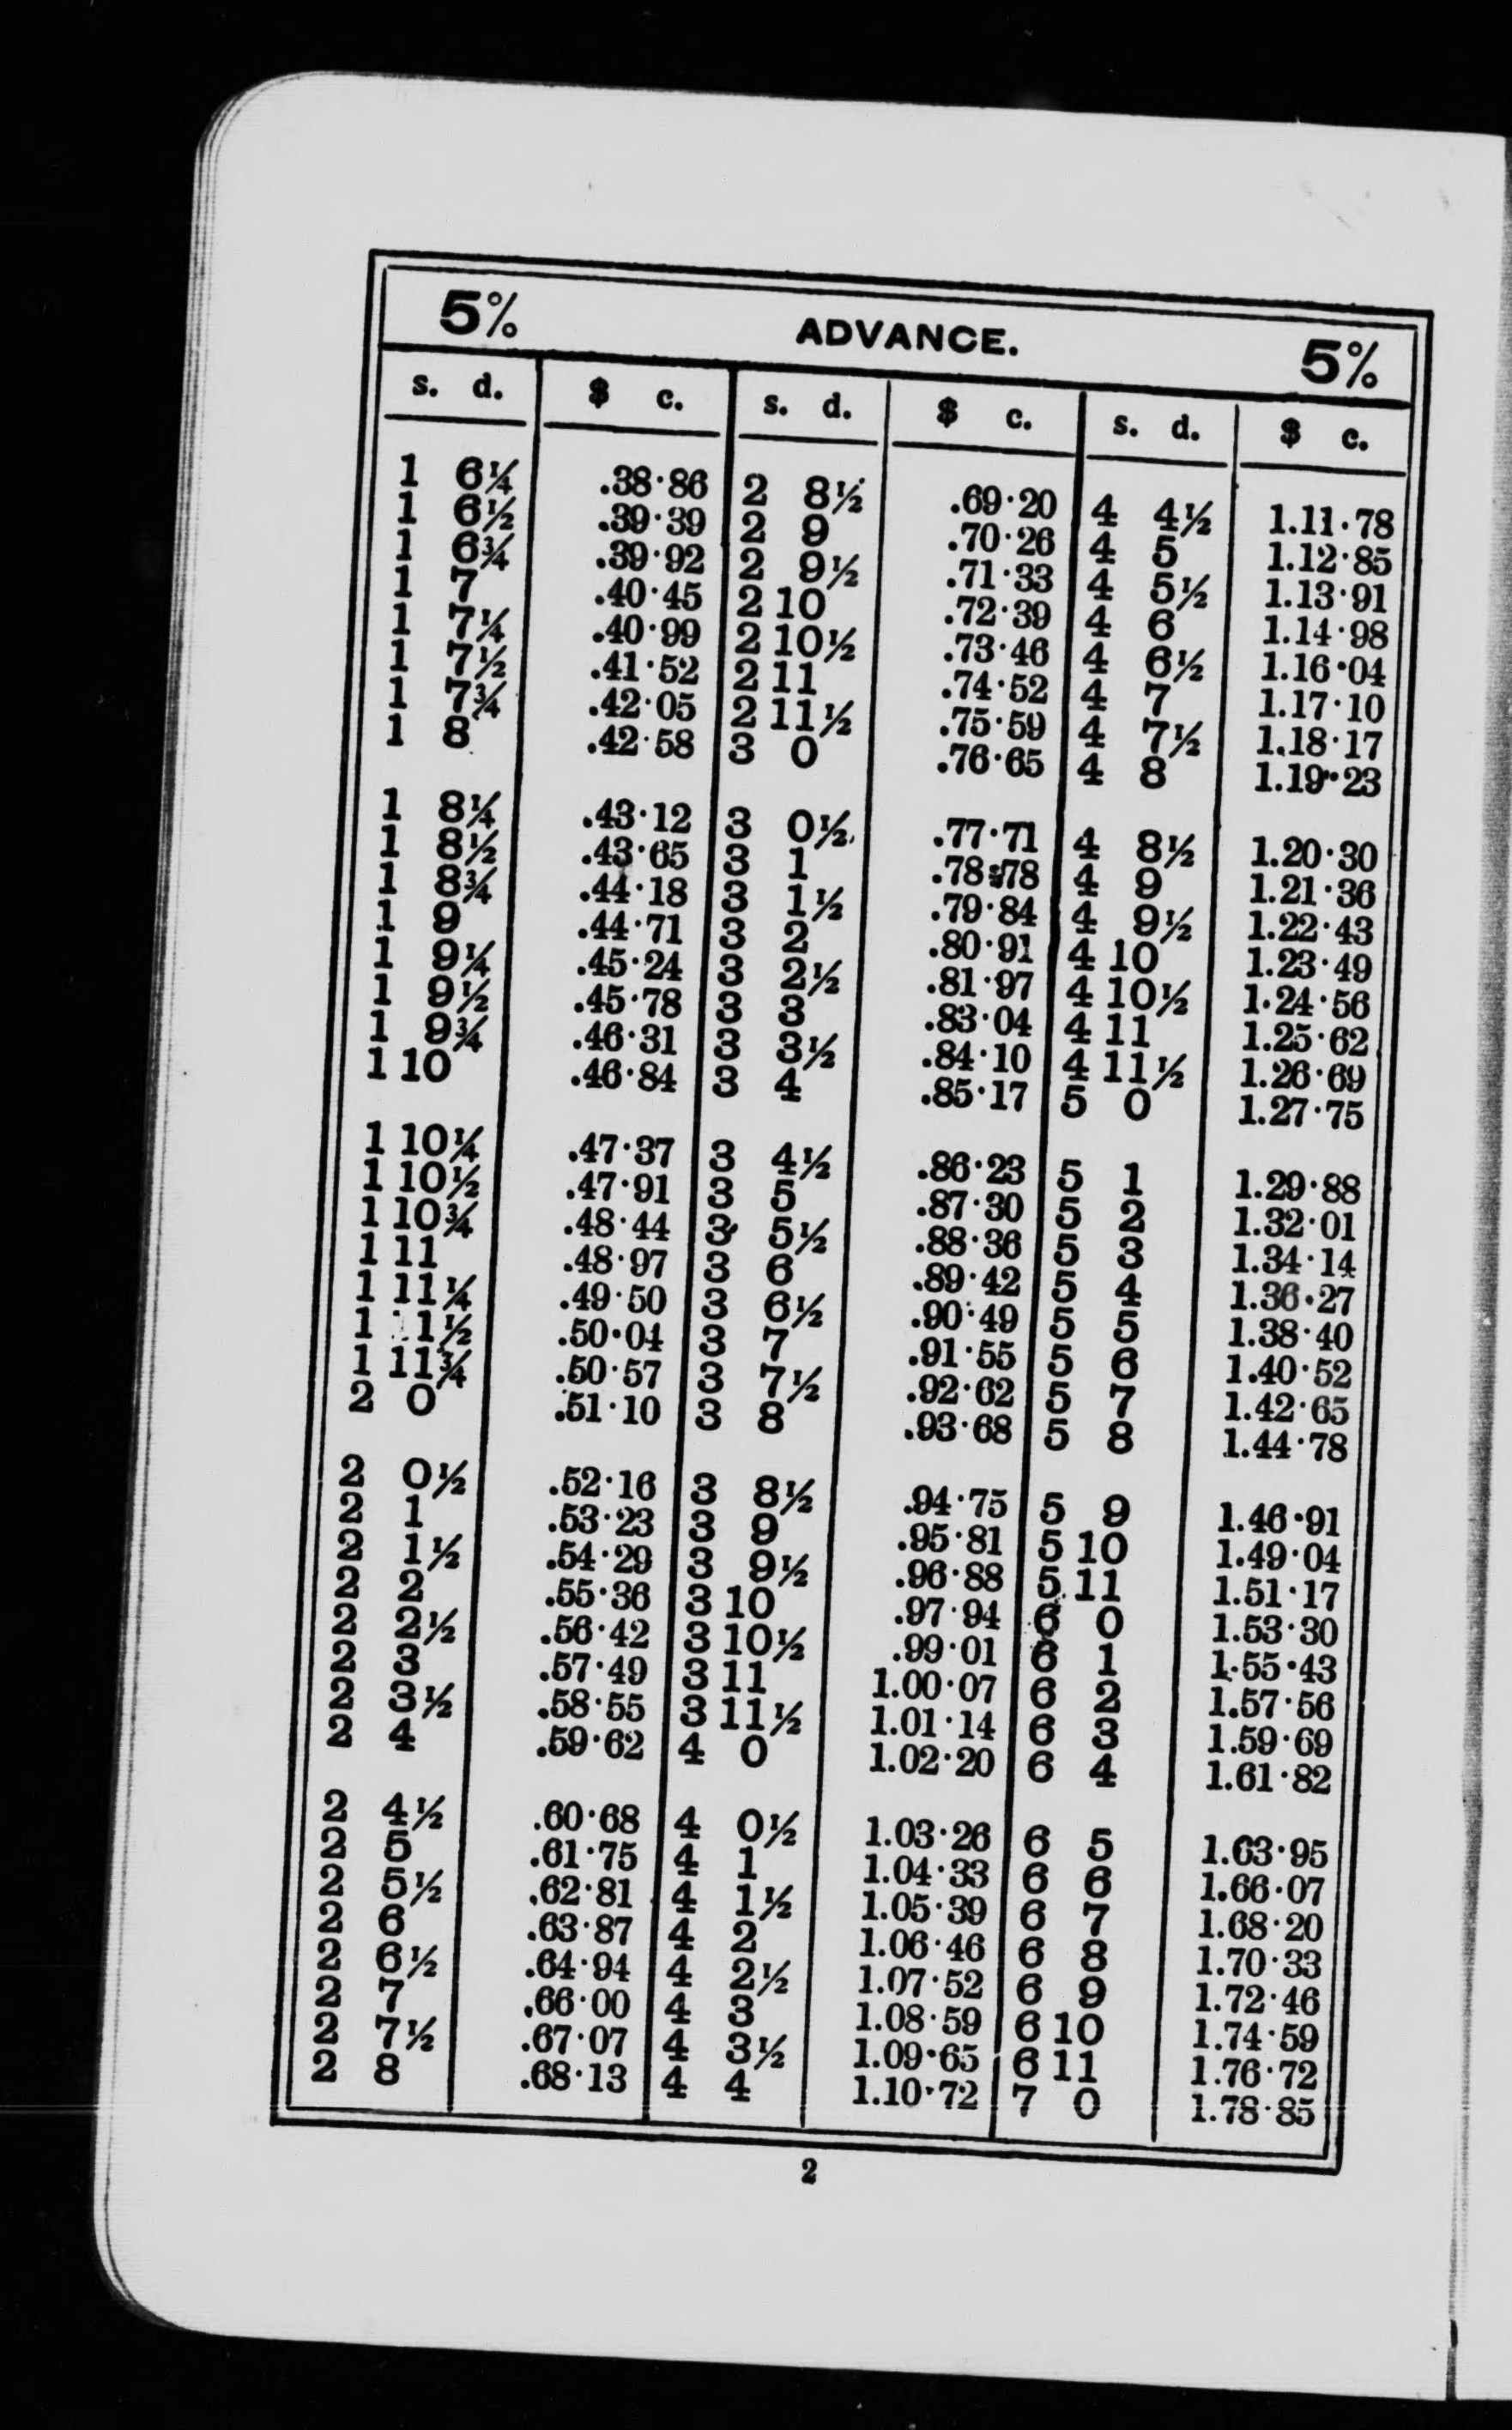 5% ADVANCE. 5%
s. d. $ c. s. d. $ c. s. d. $ c.
1 6¼ .38·86 2 8½ .69·20 4 4½ 1.11·78
1 6½ .39·39 2 9 .70·26 4 5 1.12·85
1 6¾ .39·92 2 9½ .71·33 4 5½ 1.13·91
1 7 .40·45 2 10 .72·39 4 6 1.14·98
1 7¼ .40·99 2 10½ .73·46 4 6½ 1.16·04
1 7½ .41·52 2 11 .74·52 4 7 1.17·10
1 7¾ .42·05 2 11½ .75·59 4 7½ 1.18·17
1 8 .42·58 3 0 .76·65 4 8 1.19·23
1 8¼ .43·12 3 0½ .77·71 4 8½ 1.20·30
1 8½ .43·65 3 1 .78·78 4 9 1.21·36
1 8¾ .44·18 3 1½ .79·84 4 9½ 1.22·43
1 9 .44·71 3 2 .80·91 4 10 1.23·49
1 9¼ .45·24 3 2½ .81·97 4 10½ 1.24·56
1 9½ .45·78 3 3 .83·04 4 11 1.25·62
1 9¾ .46·31 3 3½ .84·10 4 11½ 1.26·69
1 10 .46·84 3 4 .85·17 5 0 1.27·75
1 10¼ .47·37 3 4½ .86·23 5 1 1.29·88
1 10½ .47·91 3 5 .87·30 5 2 1.32·01
1 10¾ .48·44 3 5½ .88·36 5 3 1.34·14
1 11 .48·97 3 6 .89·42 5 4 1.36·27
1 11¼ .49·50 3 6½ .90·49 5 5 1.38·40
1 11½ .50·04 3 7 .91·55 5 6 1.40·52
1 11¾ .50·57 3 7½ .92·62 5 7 1.42·65
2 0 .51·10 3 8 .93·68 5 8 1.44·78
2 0½ .52·16 3 8½ .94·75 5 9 1.46·91
2 1 .53·23 3 9 .95·81 5 10 1.49·04
2 1½ .54·29 3 9½ .96·88 5 11 1.51·17
2 2 .55·36 3 10 .97·94 6 0 1.53·30
2 2½ .56·42 3 10½ .99·01 6 1 1.55·43
2 3 .57·49 3 11 1.00·07 6 2 1.57·56
2 3½ .58·55 3 11½ 1.01·14 6 3 1.59·69
2 4 .59·62 4 0 1.02·20 6 4 1.61·82
2 4½ .60·68 4 0½ 1.03·26 6 5 1.63·95
2 5 .61·75 4 1 1.04·33 6 6 1.66·07
2 5½ .62·81 4 1½ 1.05·39 6 7 1.68·20
2 6 .63·87 4 2 1.06·46 6 8 1.70·33
2 6½ .64·94 4 2½ 1.07·52 6 9 1.72·46
2 7 .66·00 4 3 1.08·59 6 10 1.74·59
2 7½ .67·07 4 3½ 1.09·65 6 11 1.76·72
2 8 .68·13 4 4 1.10·72 7 0 1.78·85
2